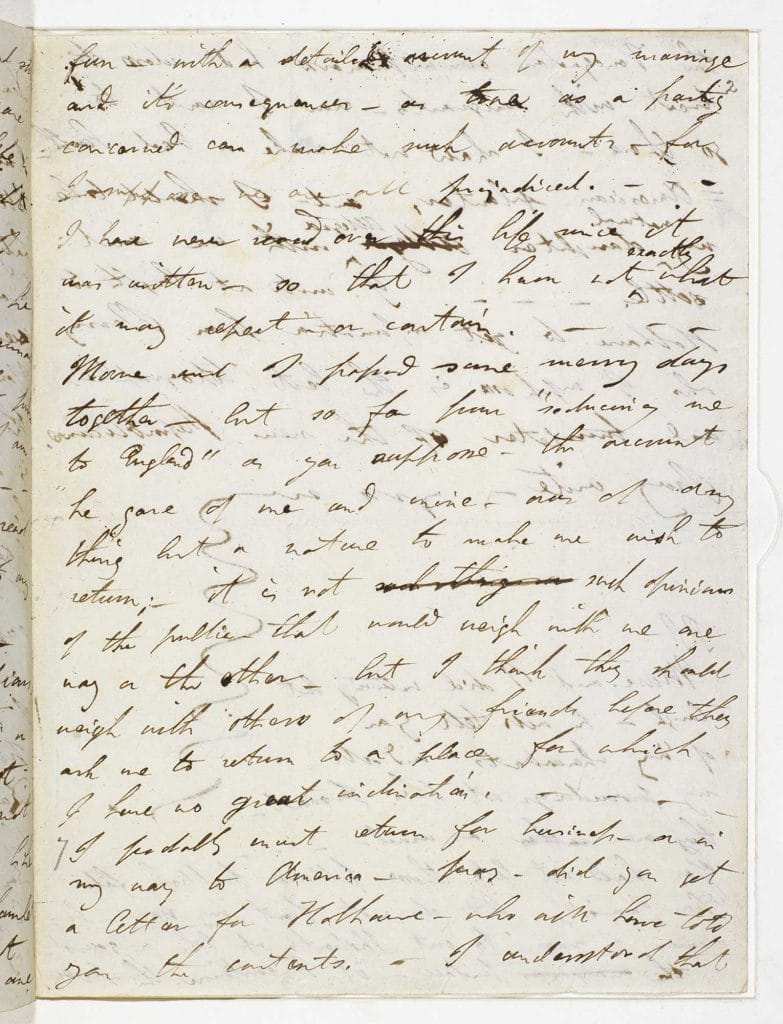 fun – with a detailed account of my marriage
and it's consequences – as true as a party
2
concerned can make such accounts – for
I suppose we are all prejudiced. – –
I have never read over this life since it
was written – so that I know not exactly what
it may repeat or contain. – –
Moore and I passed some merry days
together – but so far from "seducing me
to England" as you suppose – the account
he gave of me and mine – was of any
thing but a nature to make me wish to
return; – it is not such opinions
of the public that would weigh with me one
way or the other – but I think they should
weigh with others of my friends before they
ask me to return to a place for which
I have no great inclination. – – –
I probably must return for business – or in
my way to America – pray – did you get
a letter for Hobhouse – who will have told
you the contents. – I understood that